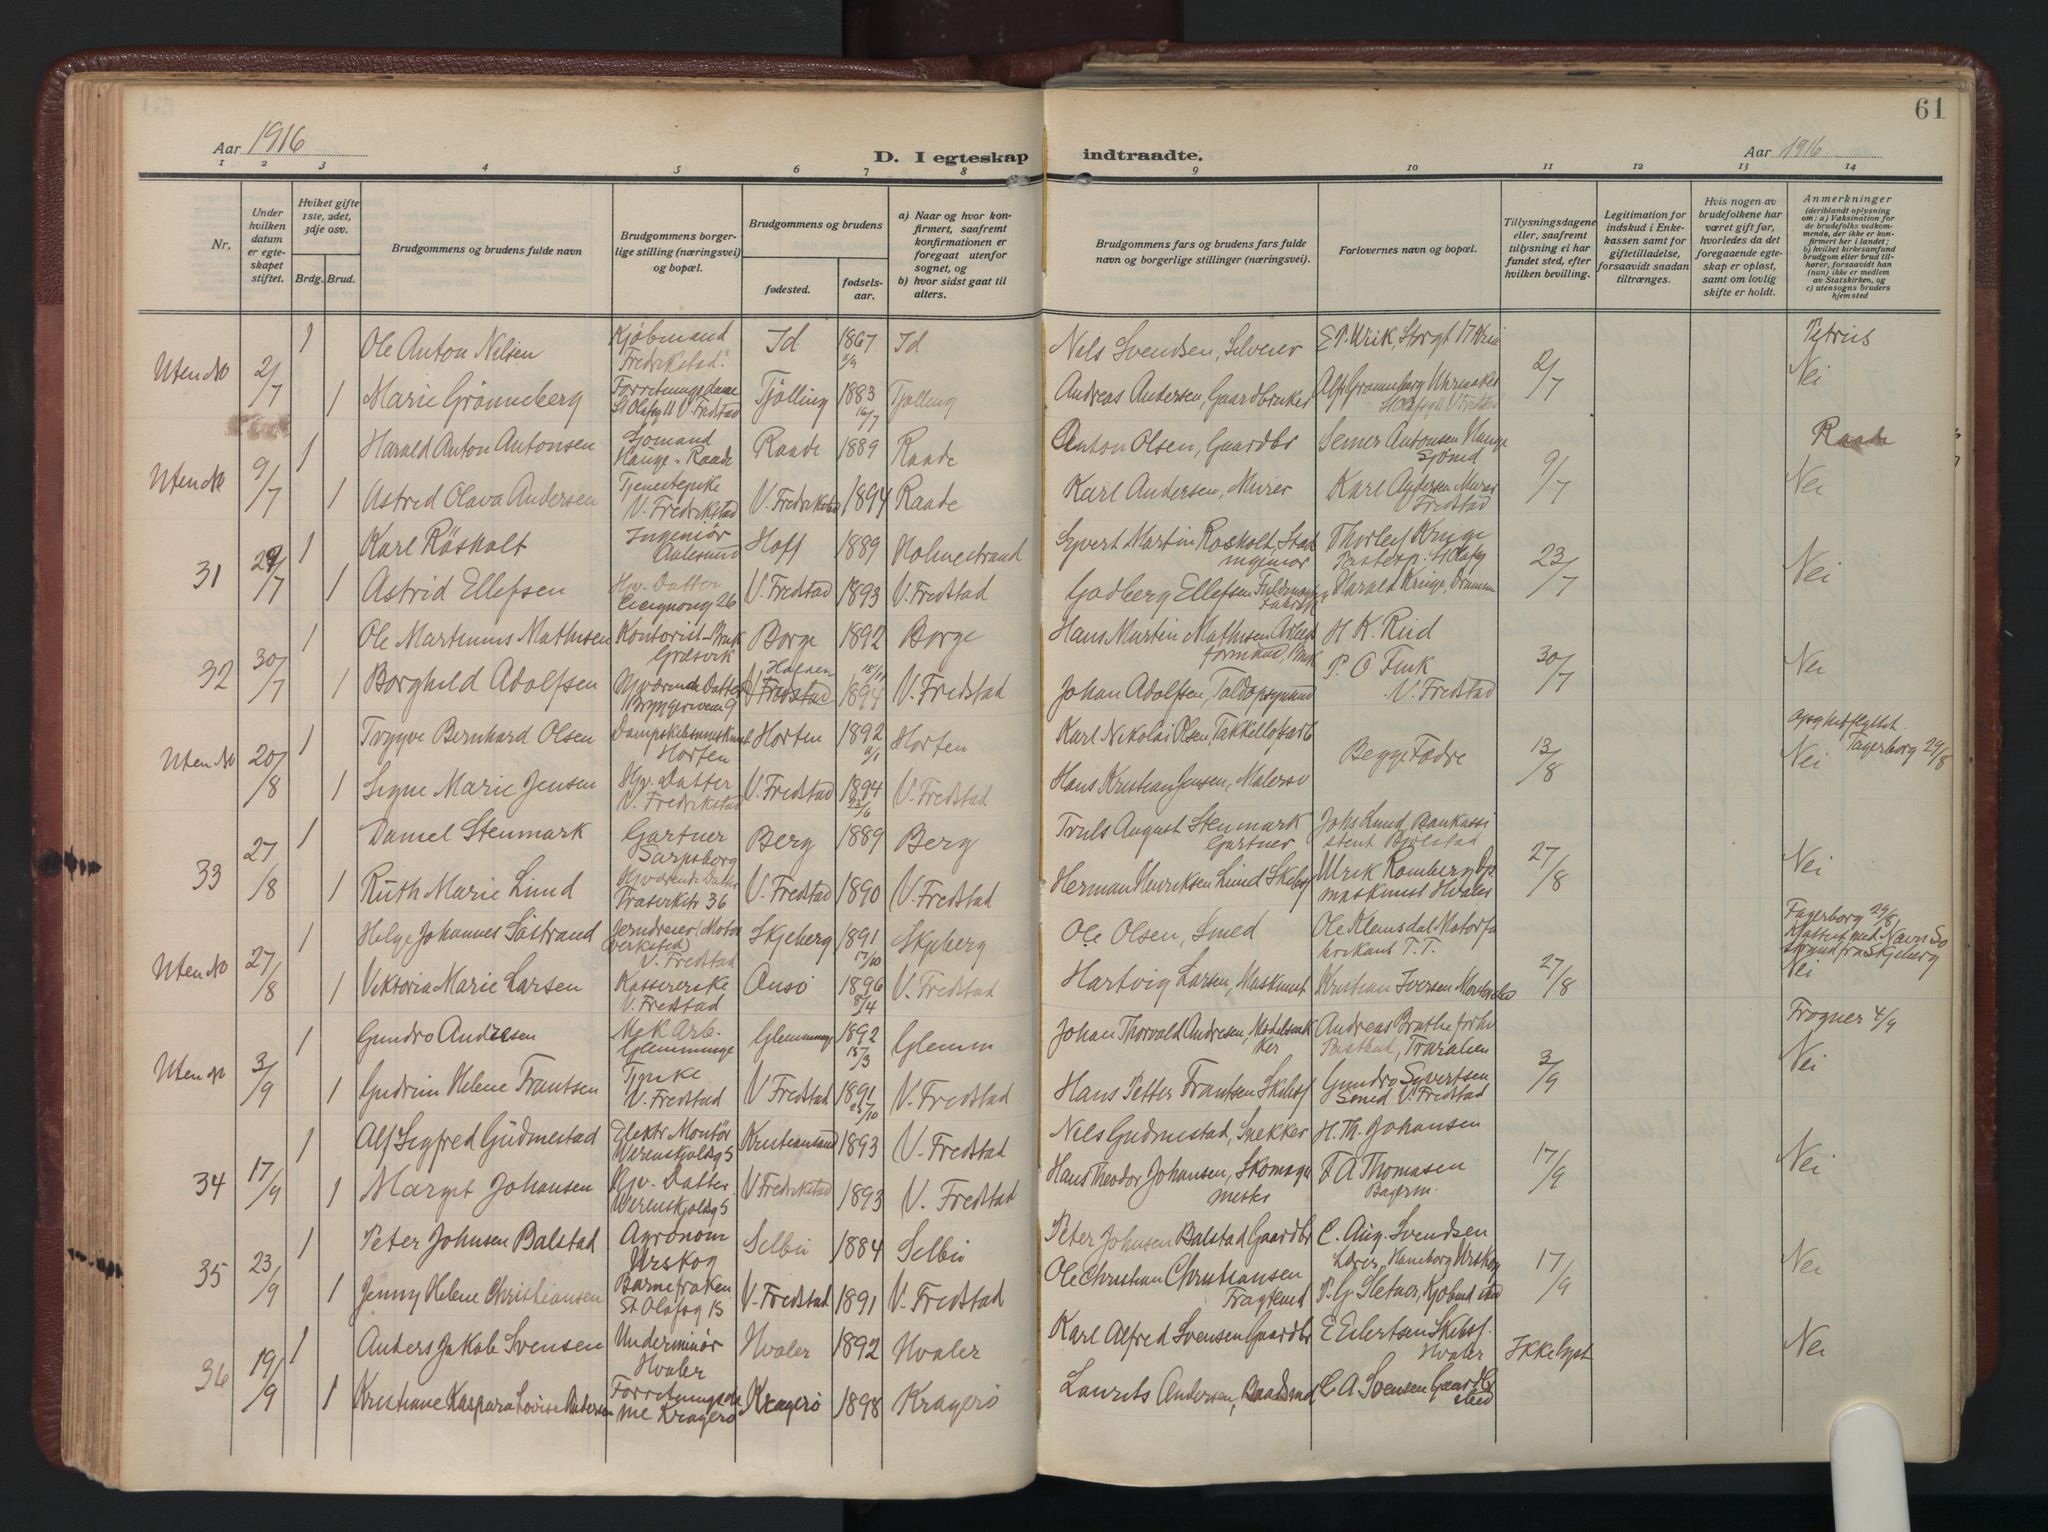 61
Aar 1916
D. I egteskap indtraadte.
Aar 1916
1 2 3 4 5 6 7 8 9 10 11 12 13 14
Nr.
Under hvilken datum er egteskapet stiftet.
Hviket gifte 1ste, 2det, 3dje osv.
Brdg. Brud.
Brudgommens og brudens fulde navn
Brudgommens borgerlige stilling (næringsvei) og bopæl.
Brudgommens og brudens
fødested.
fødselsaar.
a) Naar og hvor konfirmert, saafremt konfirmationen er foregaat utenfor sognet, og
b) hvor sidst gaat til alters.
Brudgommens fars og brudens fars fulde navn og borgerlige stillinger (næringsvei).
Forlovernes navn og bopæl.
Tillysningsdagene eller, saafremt tillysning ei har fundet sted, efter hvilken bevilling.
Legitimation for indskud i Enkekassen samt for giftetilladelse, forsaavidt saadan tiltrænges.
Hvis nogen av brudefolkene har været gift før, hvorledes da det foregaaende egteskap er opløst, samt om lovlig skifte er holdt.
Anmerkninger
(deriblandt oplysning om: a) Vaksination for de brudefolks vedkommende, der ikke er konfirmert her i landet; b) hvilket kirkesamfund brudgom eller brud tilhører, forsaavidt han (hun) ikke er medlem av Statskirken, og c) utensogns bruders hjemsted
1 Ole Anton Nilsen Kjøbmand Fredrikstad Id 1867 Id Nils Svendsen, Selveier Petrus
Uten No 2/7 1 Marie Grønneberg Forretningsdame St Olafsg 11 V. Fredstad Tjølling 1883 16/7 Tjølling Andreas Andersen, Gaardbruker Alf Grønneberg Uhrmaker St Olafsg 11 V Fredstad 2/7 Nei
1 Harald Anton Antonsen Sjømand Hauge - Raade Raade 1889 Raade Anton Olsen, Gaardbr Semer Antonsen Hauge Sjømd Raade
Uten No 9/7 1 Astrid Olava Andersen Tjenestepike V. Fredrikstad V. Fredrikstad 1894 Raade Karl Andersen, Murer Karl Andersen Murer V Fredstad 9/7 Nei
1 Karl Røsholt Ingeniør Aalesund Hoff 1889 Holmestrand Syvert Martin Rosholt, Stadingeniør Thorleif Kringe
31 29/7 1 Astrid Ellefsen Hjv. Datter V. Fredstad 1893 V. Fredstad Godberg Ellefsen Harald Kringe, Drammen 23/7 Nei
1 Ole Martinius Mathisen Kontorist Græsvik Borge 1892 Borge Hans Martin Mathisen H. K. Rud
32 30/7 1 Borghild Adolfsen Hjværende Datter Bryggeriveien 9 V Fredstad 18/11 1894 V. Fredstad Johan Adolfsen, Toldopsynsmand P. O Fink V. Fredstad 30/7 Nei
1 Trygve Bernhard Olsen Horten Horten 1892 11/1 Horten Karl Nikolai Olsen, Takkelloftsarb Begge Fædre
Uten No 20/8 1 Signe Marie Jensen Hjv. Datter V. Fredrikstad V. Fredstad 1894 22/6 V. Fredstad Hans Kristian Jensen, Malersv 13/8 Nei Fagerborg 29/8
1 Daniel Stenmark Gartner Sarpsborg Berg 1889 Berg Truls August Stenmark Gartner Johs Lund, Bankassistent
33 27/8 1 Ruth Marie Lund Hjværende Datter Traserkstr 36 V. Fredstad 1890 V. Fredstad Herman Henriksen Lund Skibsf Ulrik Romberg Hvaler 27/8 Nei
1 Helge Johannes Søstrand Jerndreier (Motorverksted) V. Fredstad Skjeberg 1891 17/10 Skjeberg Ole Olsen, Smed Ole Klemsdal Motorfabrikant T. T. Fagerborg 29/8
Uten No 27/8 1 Viktoria Marie Larsen Kassererske V. Fredstad Onsø 1896 8/4 V. Fredstad Hartvig Larsen, Maskinist Kristian Iversen 27/8 Nei
1 Gundro Andresen Mek Arb. Glemminge Glemminge 1892 15/3 Glemm Johan Thorvald Andresen, Modelsnekker Andreas Brathe Frogner 4/9
Uten No 3/9 1 Gudrun Helene Frantsen Pike V. Fredstad V Fredstad 1891 25/10 V. Fredstad Hans Petter Frantsen Skibsf Gundro Syvertsen Smed V. Fredstad 3/9 Nei
1 Alf Sigfred Gudmestad Elektr Montør Werenskjoldsg 5 Kristiansand 1893 V. Fredstad Nils Gudmestad, Snekker H. Th. Johansen
34 17/9 1 Margit Johansen Hjv. Datter Werenskjoldsg 5 V Fredrikstad 1893 V. Fredstad Hans Theodor Johansen, Skomagermester F A Thomasen Bagerm. 17/9 Nei
1 Peter Johnsen Balstad Agronom Urskog Selbu 1884 Selbu Peter Johnsen Balstad Gaardbr C. Aug. Svendsen Lærer, Haneborg Urskog
35 23/9 1 Jenny Helene Christiansen Barnefrøken St Olafsg 15 V. Fredstad 1891 V. Fredstad Ole Christian Christiansen Fragtemd P. G. Sletner, Kjøbmd 17/9 Nei
1 Anders Jakob Svensen Underminør Hvaler Hvaler 1892 Hvaler Karl Alfred Svensen Gaardbr E Eilertsen Skibsf. Hvaler
36 19/9 1 Kristiane Kaspara Lovise Andersen Forretningsdame Kragerø Kragerø 1898 Kragerø Laurits Andersen, Baadsmd C A Svensen Gaardbr Ikke lyst Nei